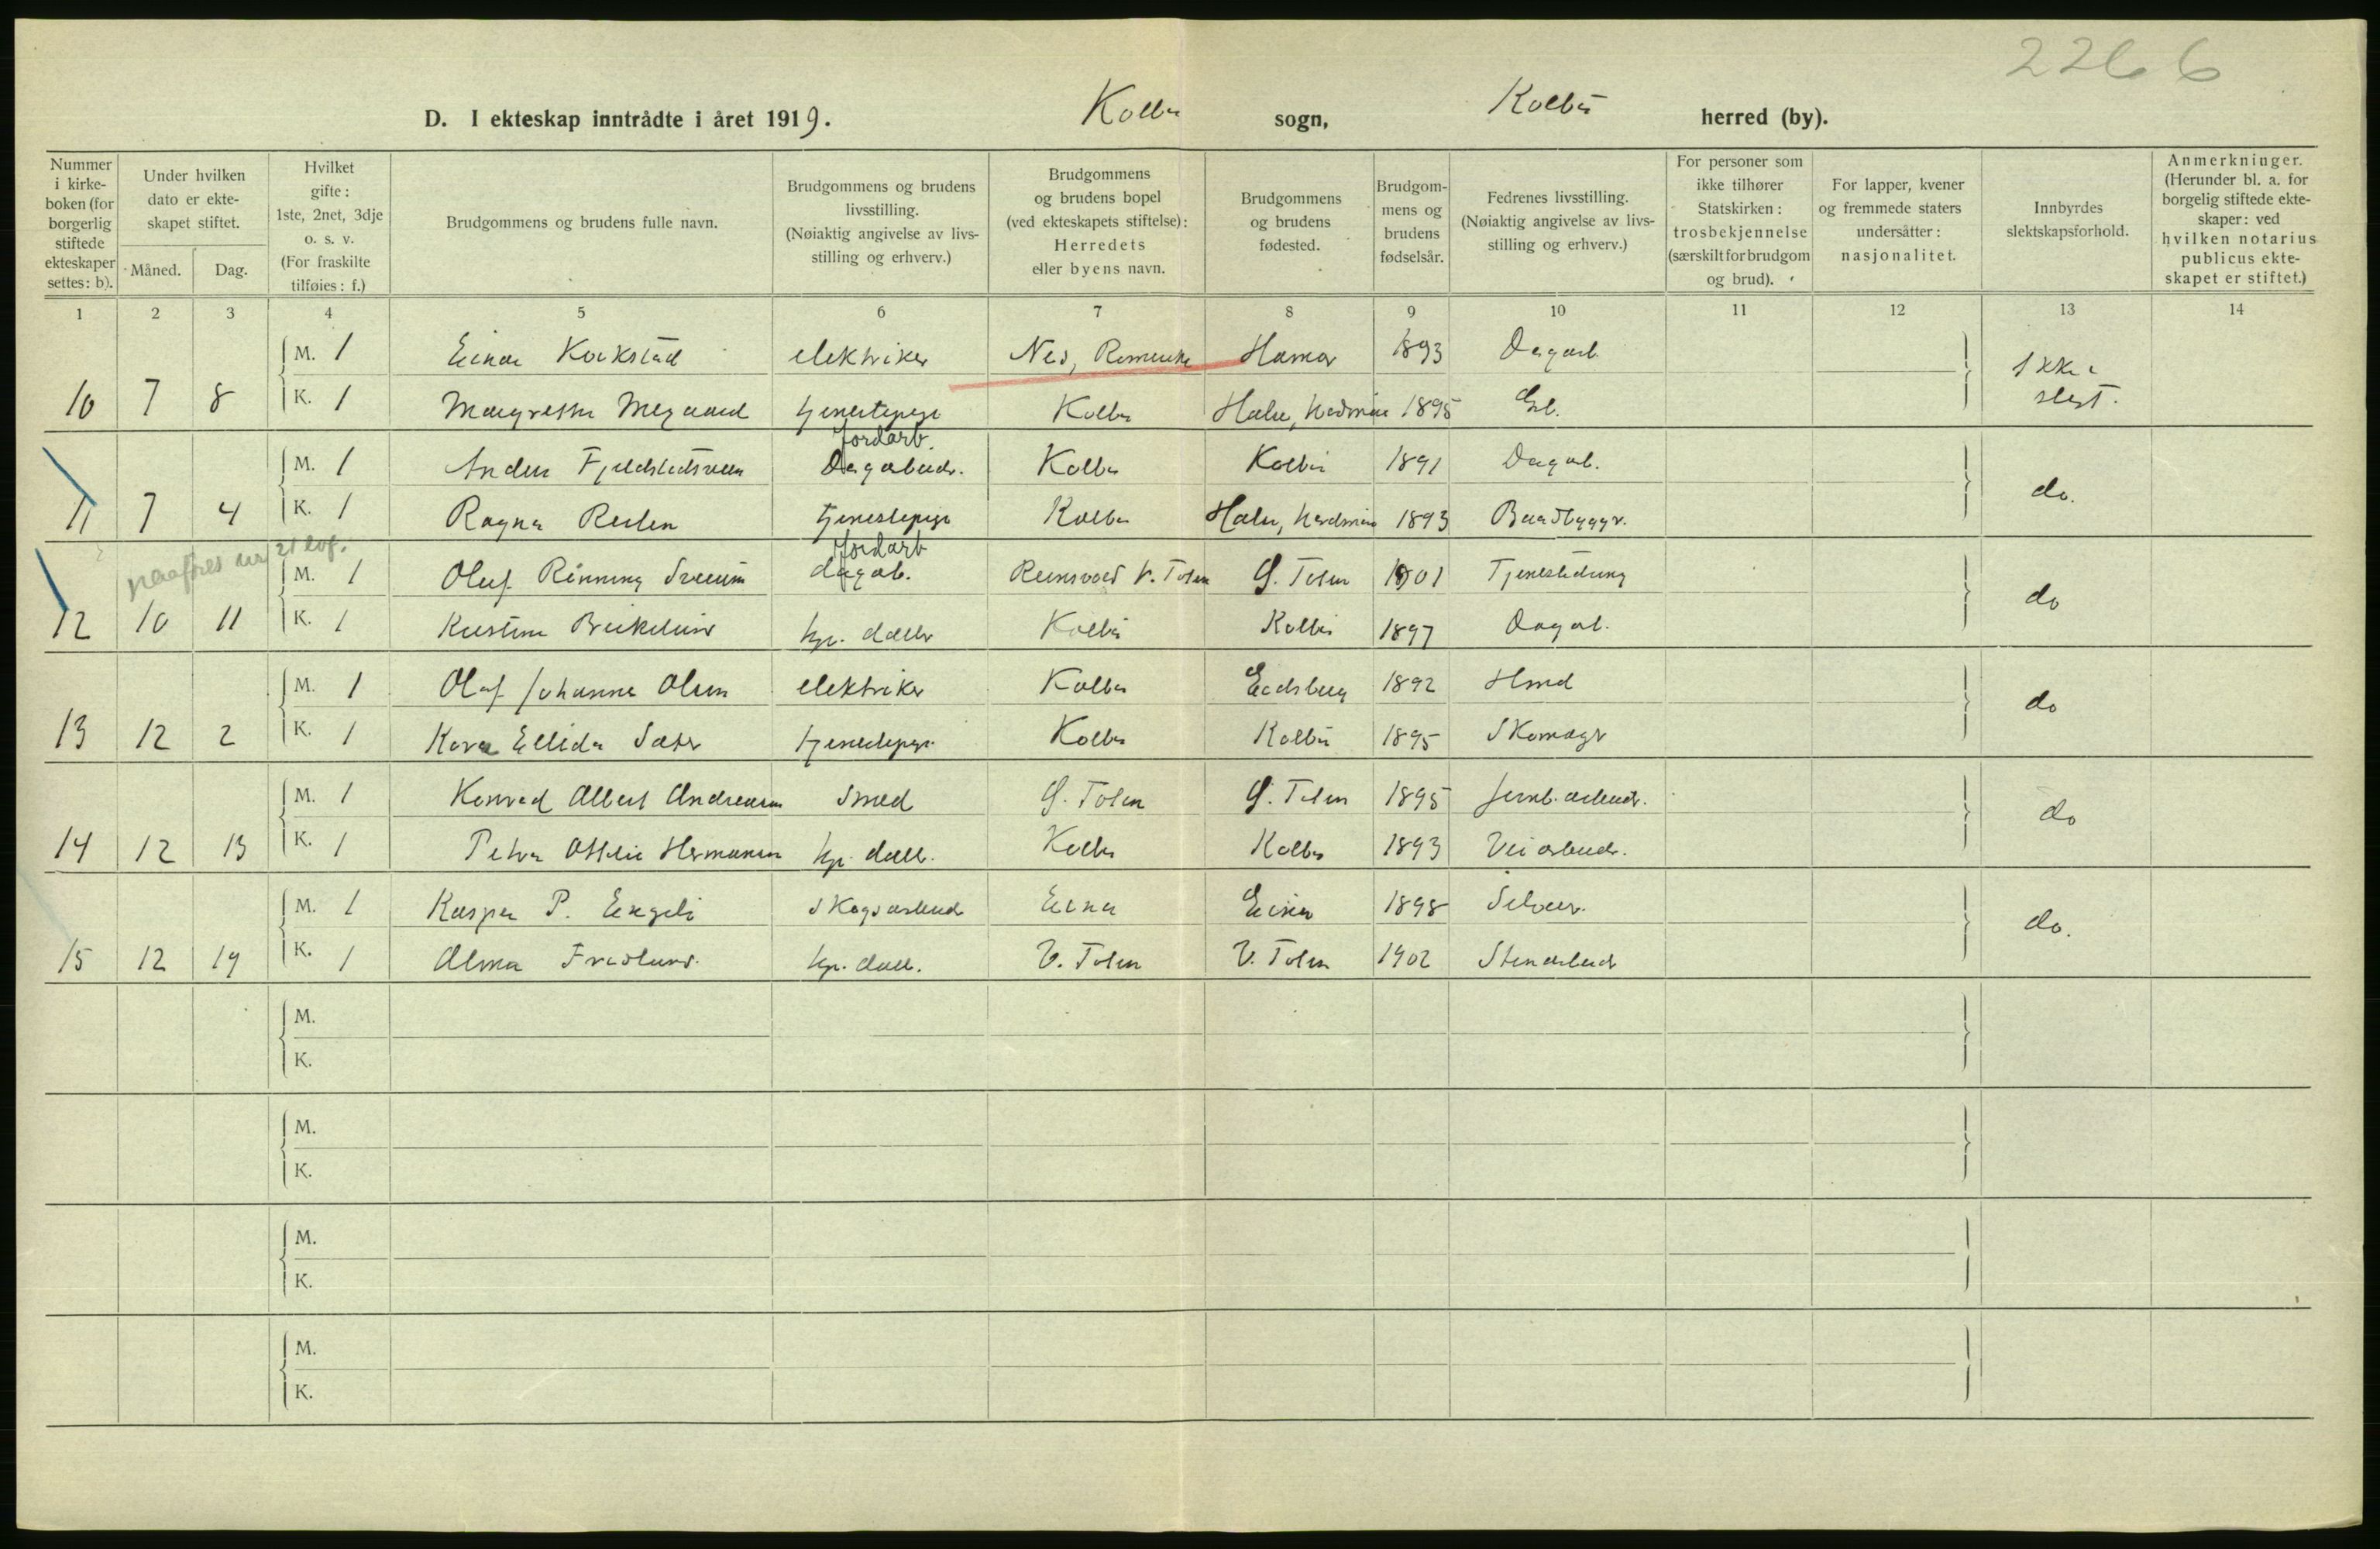 2266
D. I ekteskap inntrådte i året 1919. Kolbu sogn, Kolbu herred (by).
Nummer i kirkeboken (for borgerlig stiftede ekteskaper settes: b).
Under hvilken dato er ekteskapet stiftet.
Måned. Dag.
Hvilket gifte: 1ste, 2net, 3dje o. s. v. (For fraskilte tilføies: f.)
Brudgommens og brudens fulle navn.
Brudgommens og brudens livsstilling. (Nøiaktig angivelse av livsstilling og erhverv.)
Brudgommens og brudens bopel (ved ekteskapets stiftelse): Herredets eller byens navn.
Brudgommens og brudens fødested.
Brudgommens og brudens fødselsår.
Fedrenes livsstilling. (Nøiaktig angivelse av livsstilling og erhverv.)
For personer som ikke tilhører Statskirken: trosbekjennelse (særskilt for brudgom og brud).
For lapper, kvener og fremmede staters undersåtter: nasjonalitet.
Innbyrdes slektskapsforhold.
Anmerkninger. (Herunder bl. a. for borgelig stiftede ekteskaper: ved hvilken notarius publicus ekteskapet er stiftet.)
1 2 3 4 5 6 7 8 9 10 11 12 13 14
M. 1 Einar elektriker Nes, Romerike Hamar 1893 Dagarb. Ikke
10 7 8 K. 1 Margrethe tjenestepige Kolbu 1895 slegt.
jordarb.
M. 1 Kolbu Kolbu 1891 Dagarb.
11 7 4 K. 1 Ragna tjenestepige Kolbu 1893 do.
jordarb
M. 1 Oluf Rønning dagarb. Reinsvold V. Toten Ø. Toten 1901
12 10 11 K. 1 hp. datter Kolbu Kolbu 1897 Dagarb. do
M. 1 Olaf Johannes Olsen elektriker Kolbu Eidsberg 1892 Smed
13 12 2 K. 1 Ellida Sæter tjenestepige Kolbu Kolbu 1895 Skomager do
M. 1 Konrad Albert Andreassen Smed Ø. Toten Ø. Toten 1895 jernb. arbeider.
14 12 13 K. 1 Petra Othilie Hermansen hp. datter. Kolbu Kolbu 1893 Veiarbeider. do
M. 1 Kasper P. Skogsarbeider Eina Eina 1898 Selveier.
15 12 19 K. 1 Alma Fredlund. hp. datter. V. Toten V. Toten 1902 Stenarbeider do.
M.
K.
M.
K.
M.
K.
M.
K.